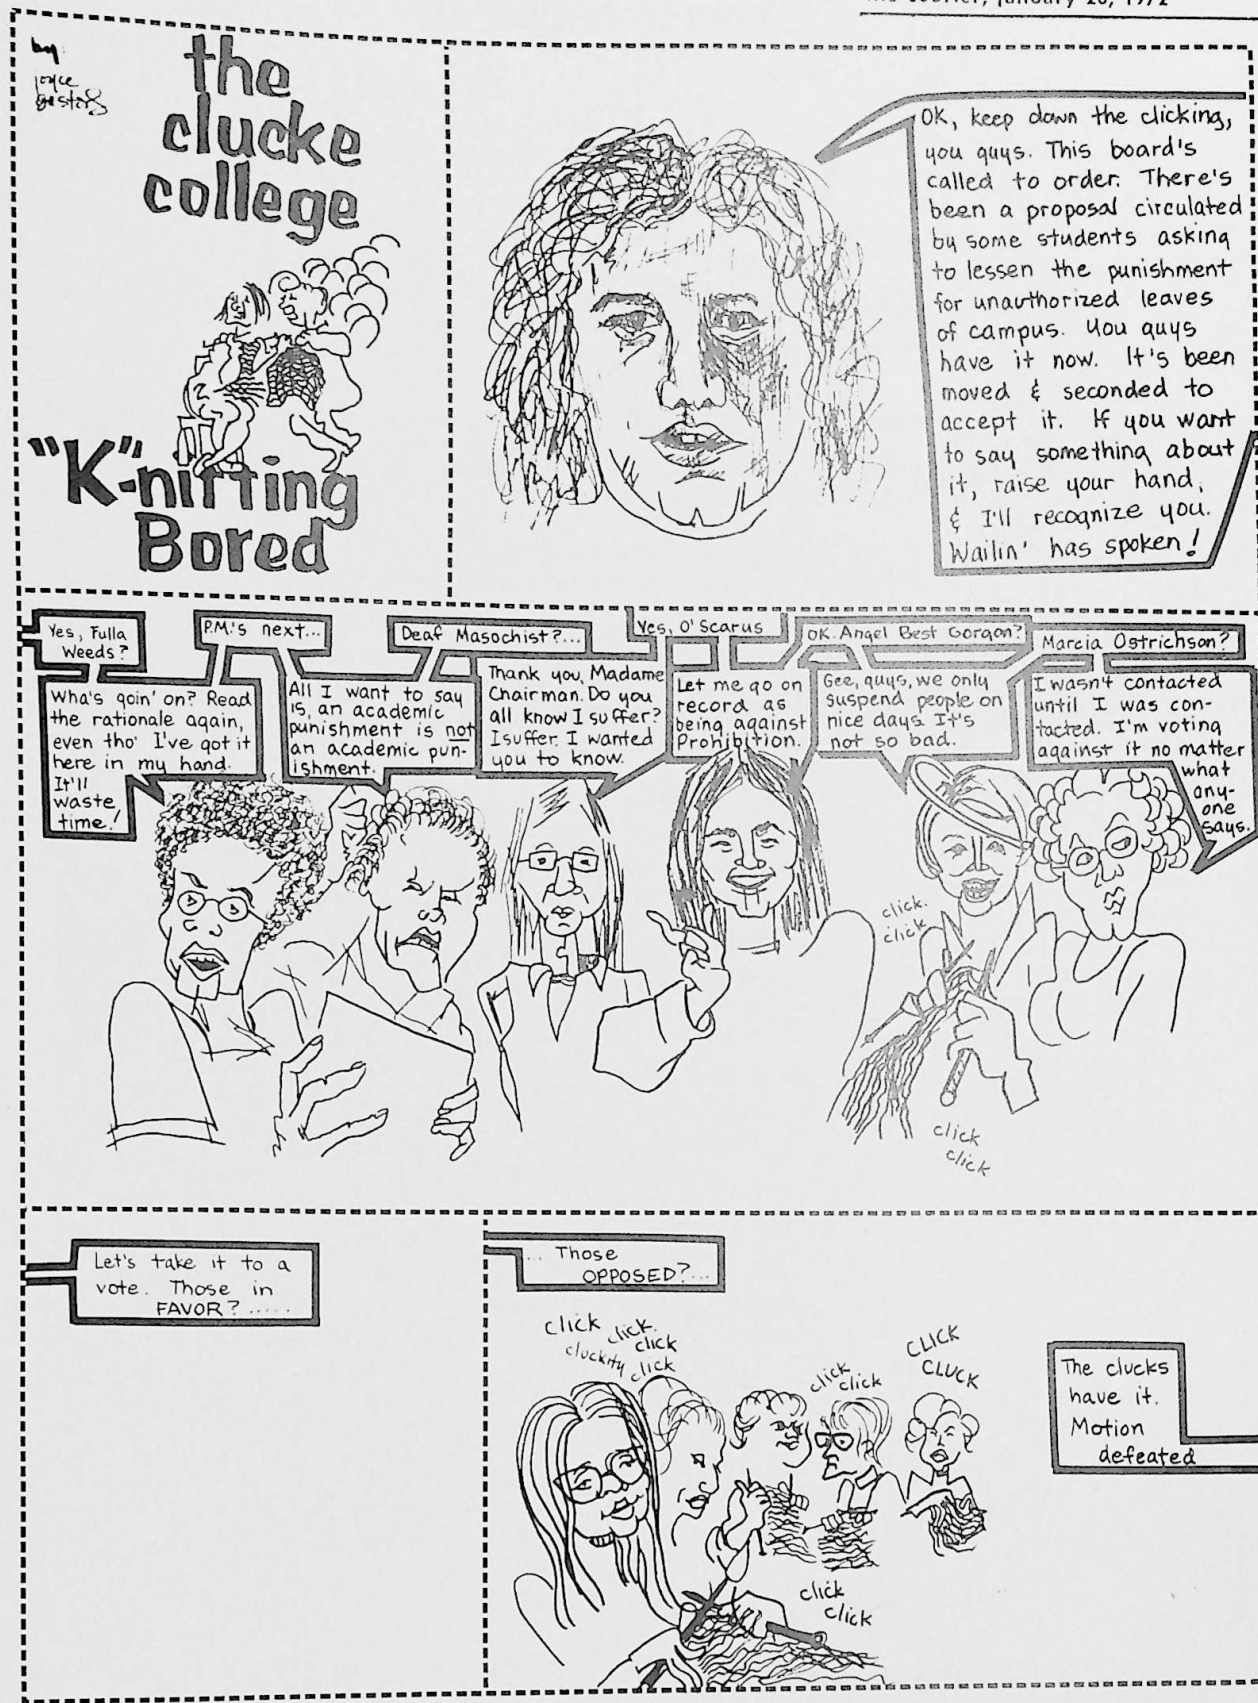 by:
joyce
the
clucke
college
"K"-nitting
Bored
OK, keep down the clicking,
you guys. This board's
called to order. There's
been a proposal circulated
by some students asking
to lessen the punishment
for unauthorized leaves
of campus. You guys
have it now. It's been
moved & seconded to
accept it. If you want
to say something about
it, raise your hand,
& I'll recognize you.
Wailin' has spoken!
Yes, Fulla
Weeds?
Wha's goin' on? Read
the rationale again,
even tho' I've got it
here in my hand.
It'll
waste
time!
P.M.'s next...
All I want to say
is, an academic
punishment is not
an academic pun-
ishment.
Deaf Masochist?...
Thank you, Madame
Chairman. Do you
all know I suffer?
I suffer. I wanted
you to know.
Yes, O'Scarus
Let me go on
record as
being against
Prohibition.
OK. Angel Best Gorgon?
Gee, guys, we only
suspend people on
nice days. It's
not so bad.
Marcia Ostrichson?
I wasn't contacted
until I was con-
tacted. I'm voting
against it no matter
what
any-
one
says.
click.
click
click
click
Let's take it to a
vote. Those in
FAVOR? .....
... Those
OPPOSED?...
click click.
cluckity click
click
click
click
CLICK
CLUCK
click
click
The clucks
have it.
Motion
defeated